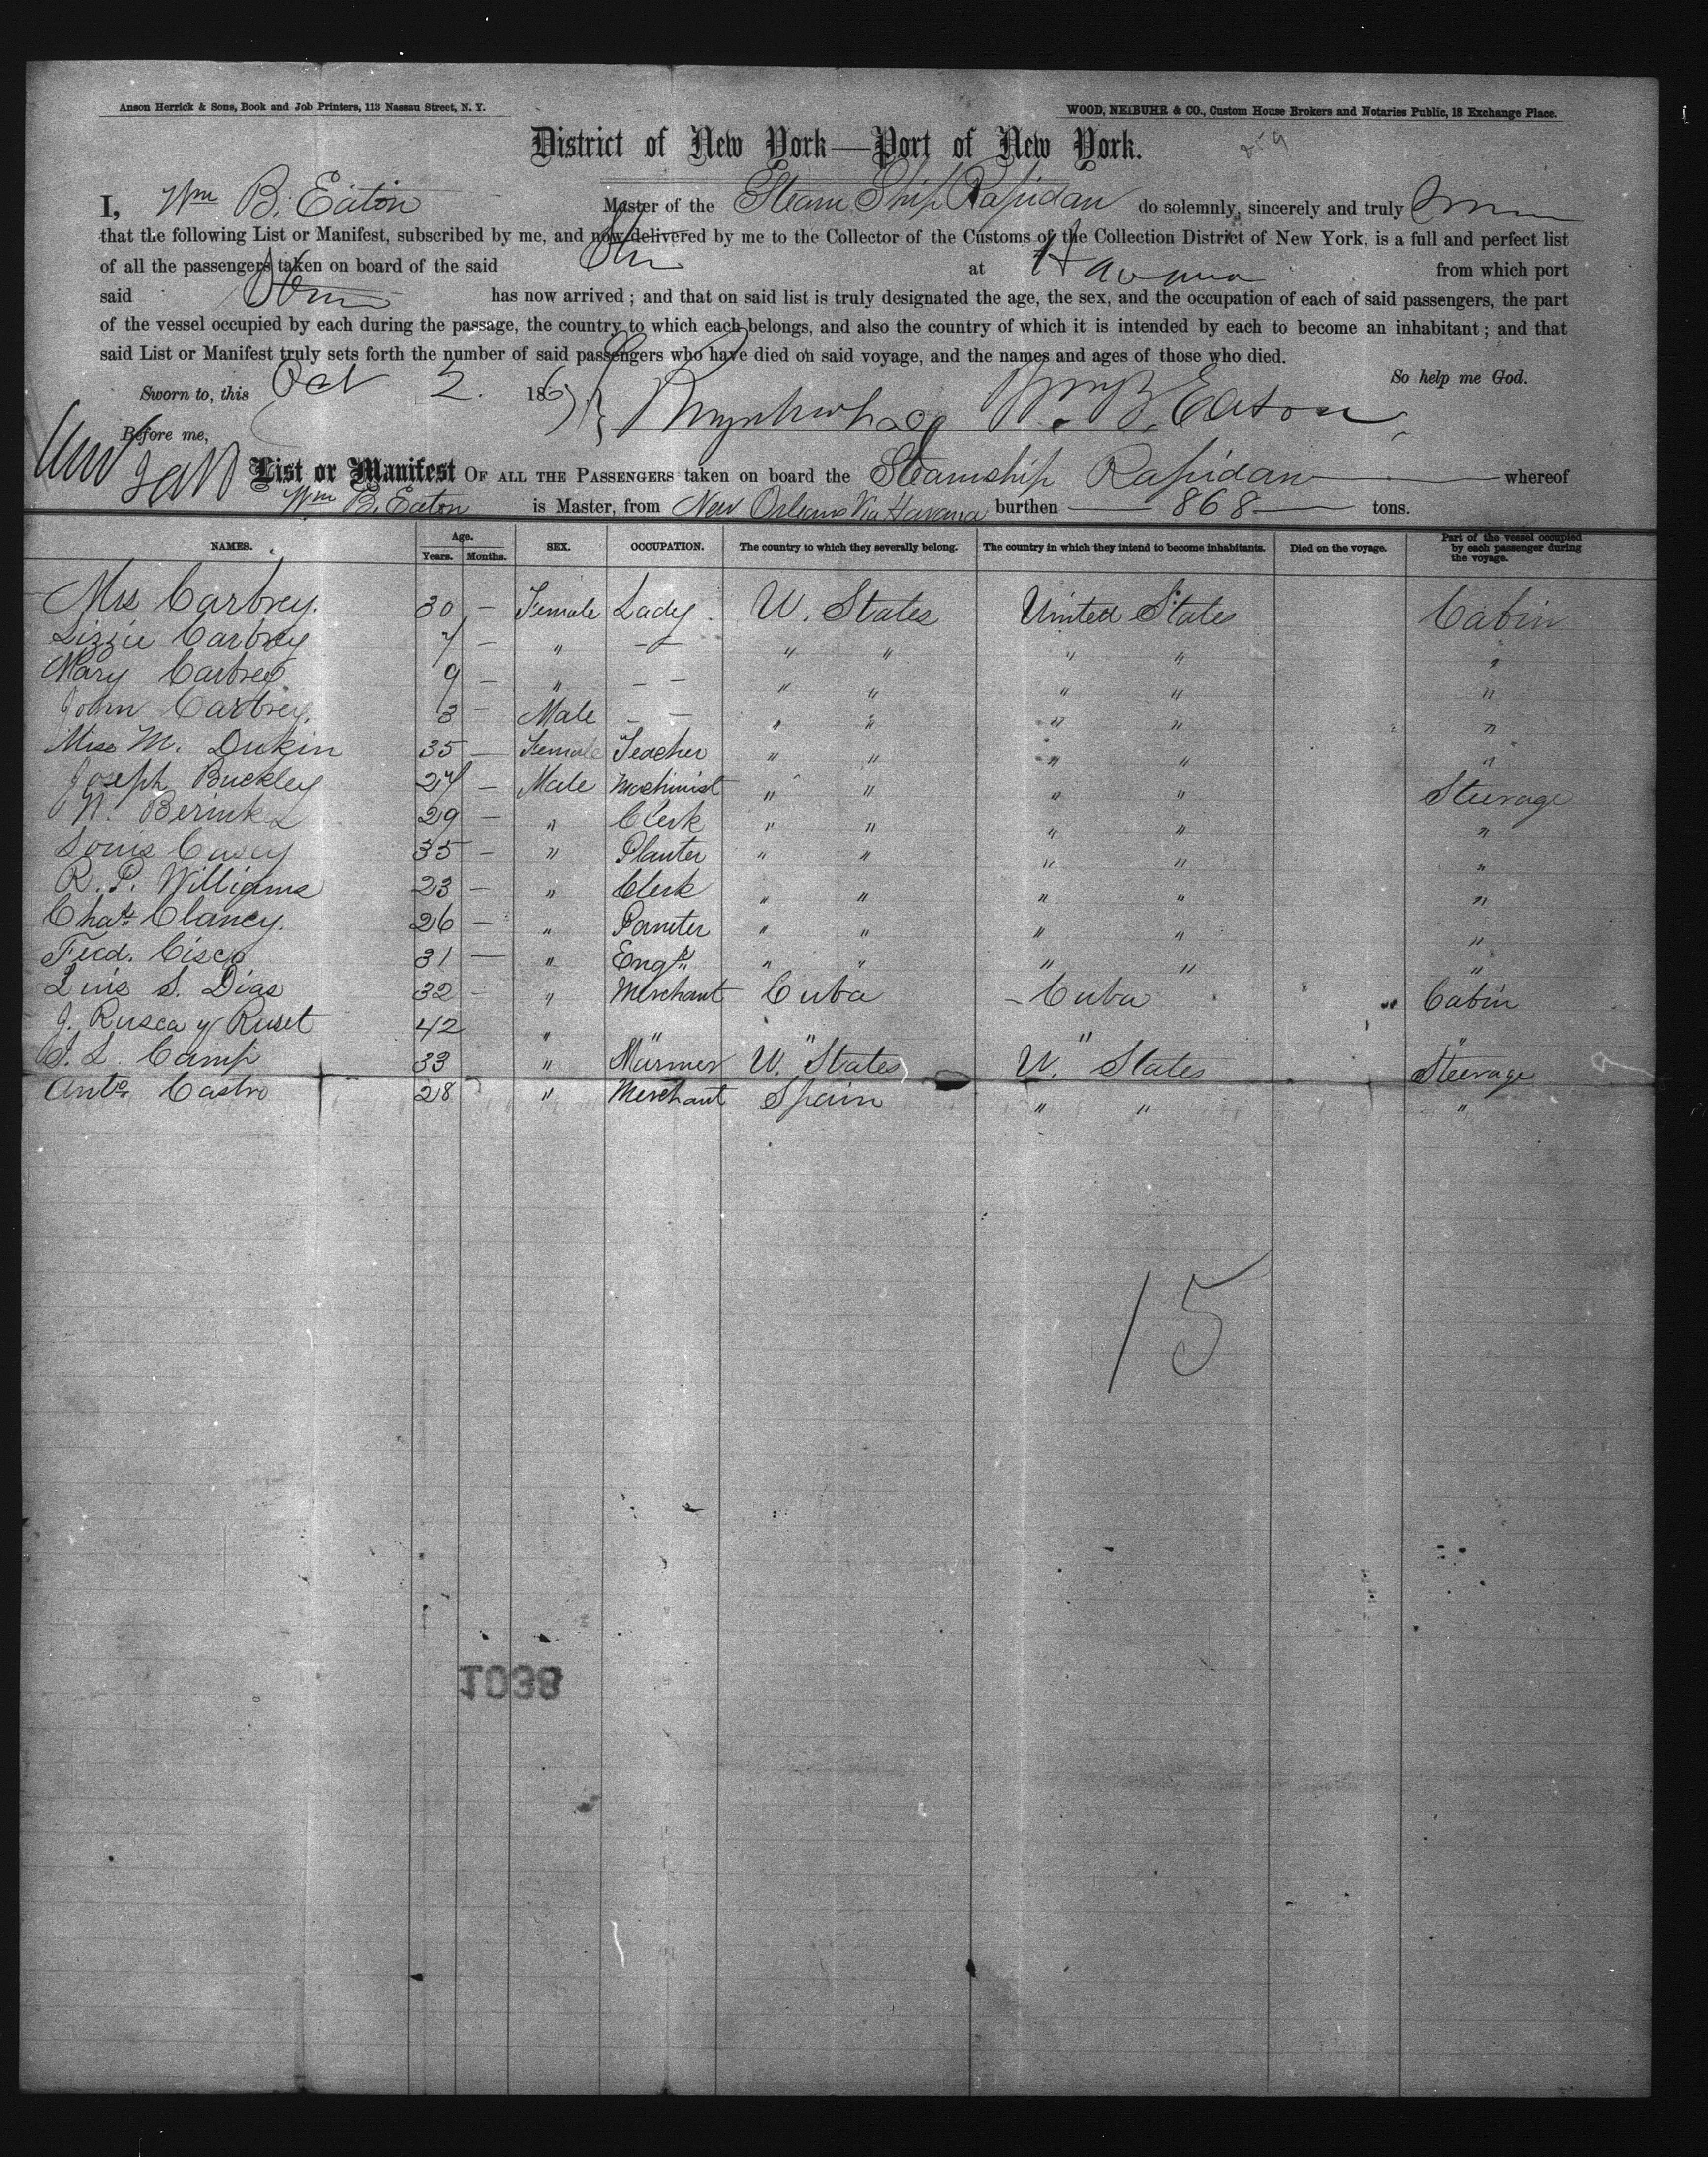 Anson Herrick & Sons, Book and Job Printers, 113 Nassau Street, N. Y.
WOOD, NEIBUHR & CO., Custom House Brokers and Notaries Public, 18 Exchange Place.
District of New York—Port of New York.
I, Wm B. Eaton Master of the Steam Ship Rapidan do solemnly, sincerely and truly
that the following List or Manifest, subscribed by me, and now delivered by me to the Collector of the Customs of the Collection District of New York, is a full and perfect list
of all the passengers taken on board of the said at Havana from which port
said has now arrived ; and that on said list is truly designated the age, the sex, and the occupation of each of said passengers, the part
of the vessel occupied by each during the passage, the country to which each belongs, and also the country of which it is intended by each to become an inhabitant ; and that
said List or Manifest truly sets forth the number of said passengers who have died on said voyage, and the names and ages of those who died.
So help me God.
Sworn to, this Oct 2. 186 Wm. B. Eaton
Before me,
List or Manifest OF ALL THE PASSENGERS taken on board the Steamship Rapidan whereof
Wm B. Eaton is Master, from New Orleans Via Havana burthen 868 tons.
NAMES. Age. Years. Months. SEX. OCCUPATION. The country to which they severally belong. The country in which they intend to become inhabitants. Died on the voyage. Part of the vessel occupied by each passenger during the voyage.
Mrs Carbrey. 30 — Female Lady. U. States United States Cabin
Lizzie Carbrey 7 — " — — " " " " "
Mary Carbrey 9 — " — — " " " " "
John Carbrey. 3 — Male — — " " " " "
Miss M. Dukin 35 — Female Teacher " " " " "
Joseph Buckley 27 — Male Machinist " " " " Steerage
N. 29 — " Clerk " " " " "
Louis Casey 35 — " Planter " " " " "
R. P. Williams 23 — " Clerk " " " " "
Chas. Clancy. 26 — " Painter " " " " "
Fred. Cisco 31 — " Engr. " " " " "
Luis S. Dias 32 — " Merchant Cuba Cuba Cabin
J. Rusca y Ruset 42 " " " " "
L. Camp 33 " Mariner U. States U. States Steerage
Anto. Castro 28 " Merchant Spain " " "
15
1038